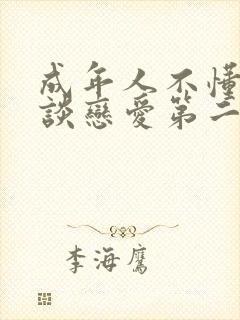 成年人不懂
談戀愛第二
李海鷹